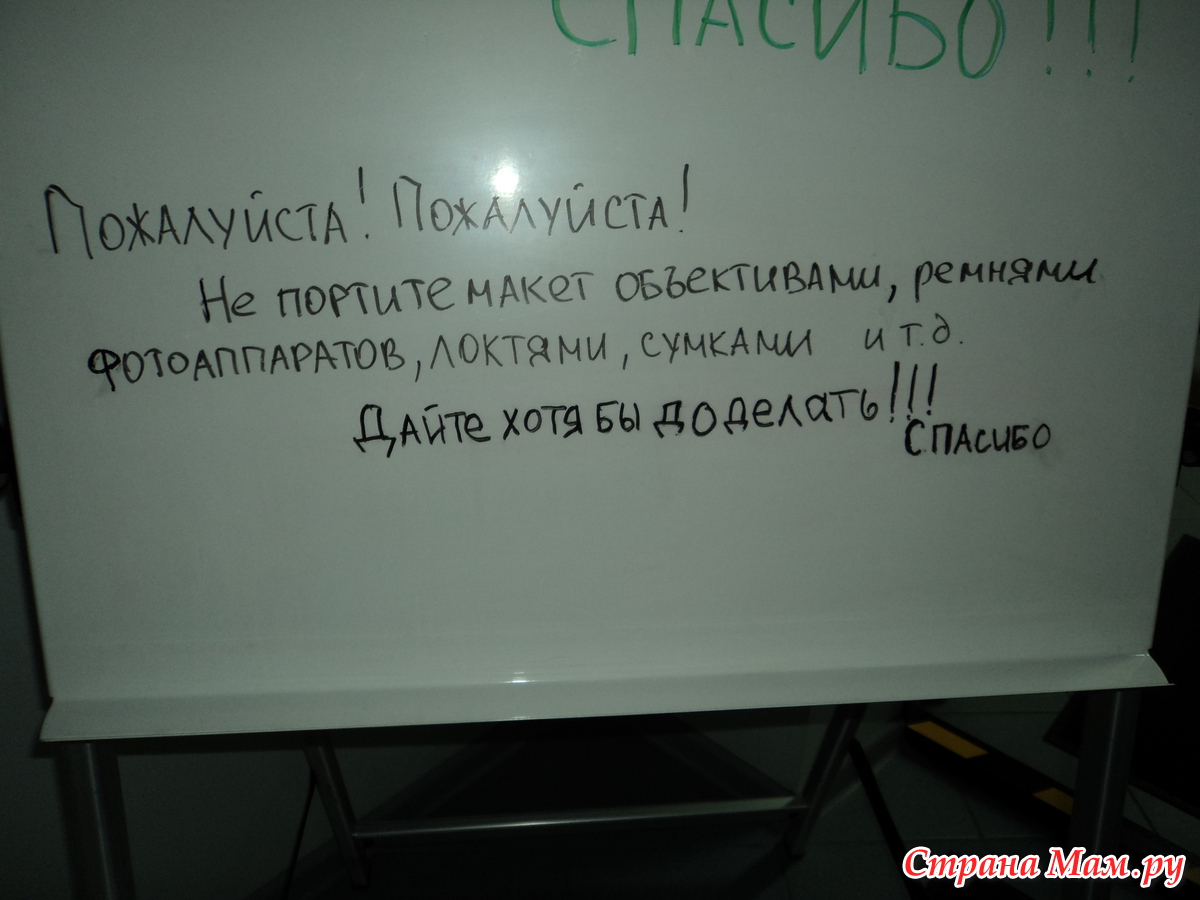 СПАСИБО!!!
Пожалуйста! Пожалуйста!
Не портите макет объективами, ремнями
фотоаппаратов, локтями, сумками и т.д.
Дайте хотя бы доделать!!!
Спасибо
Страна Мам.ру